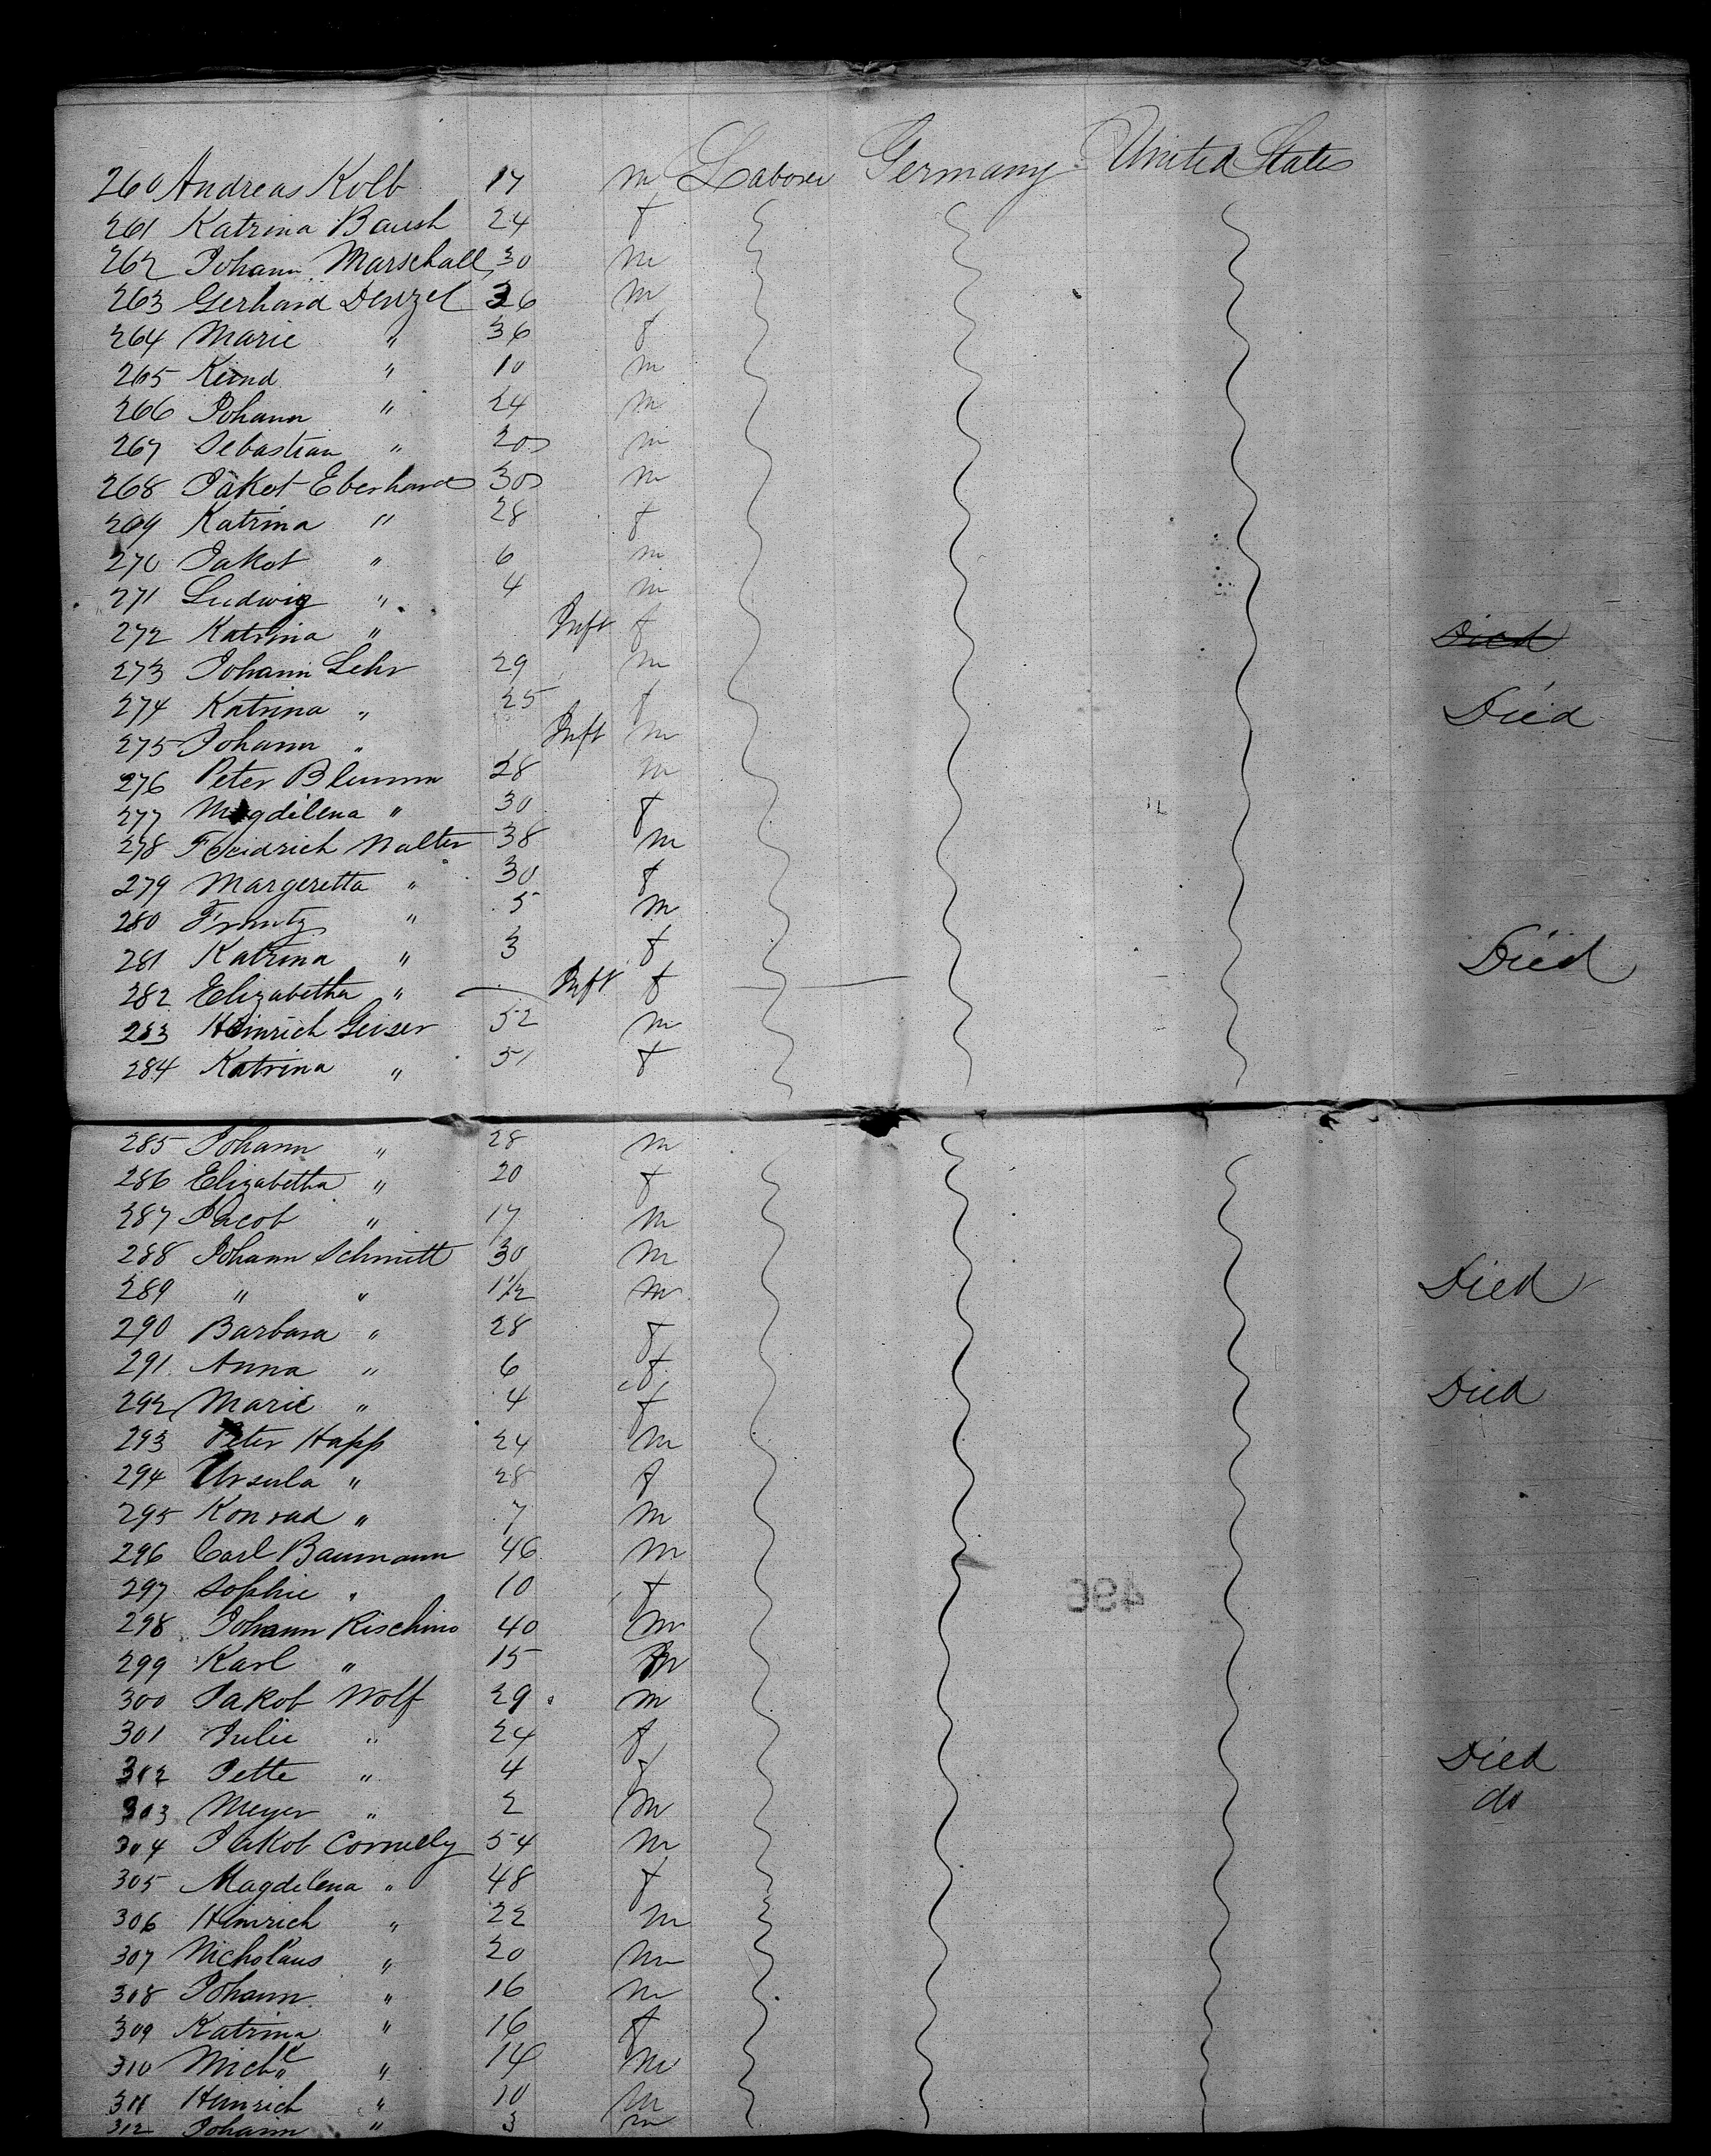 260 Andreas Kolb 17 m Laborer Germany United States
261 Katrina Baush 24 f
262 Johann Marschall 30 m
263 Gerhard Denzel 36 m
264 Marie " 36 f
265 Kind " 10 m
266 Johann " 24 m
267 Sebastian " 20 m
268 Jakob Eberhard 30 m
269 Katrina " 28 f
270 Jakob " 6 m
271 Ludwig " 4 m
272 Katrina " Inft f Died
273 Johann Lehr 29 m
274 Katrina " 25 f Died
275 Johann " Inft m
276 Peter Blumm 28 m
277 Magdilena " 30 f
278 Freidrich Walter 38 m
279 Margeretta " 30 f
280 Frantz " 5 m
281 Katrina " 3 f Died
282 Elizabetha " Inft f
283 Heinrich Geiser 52 m
284 Katrina " 51 f
285 Johann " 28 m
286 Elizabetha " 20 f
287 Jacob " 17 m
288 Johann Schmitt 30 m
289 " " 1 1/2 m Died
290 Barbara " 28 f
291 Anna " 6 f
292 Marie " 4 f Died
293 Peter Happ 24 m
294 Ursula " 28 f
295 Konrad " 7 m
296 Carl Baumann 46 m
297 Sophie " 10 f
298 Johann Rischino 40 m
299 Karl " 15 m
300 Jakob Wolf 29 m
301 Julie " 24 f
302 Jette " 4 f Died
303 Meyer " 2 m do
304 Jakob Cornelly 54 m
305 Magdelena " 48 f
306 Heinrich " 22 m
307 Nicholaus " 20 m
308 Johann " 16 m
309 Katrina " 16 f
310 Michl " 14 m
311 Heinrich " 10 m
312 Johann " 3 m